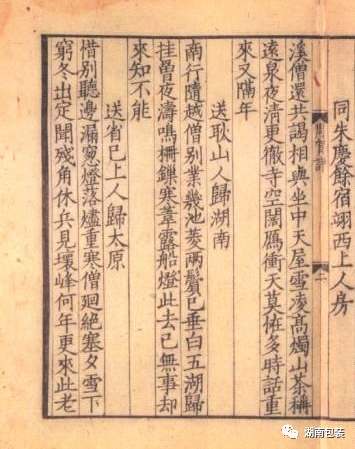 同朱慶餘宿翊西上人房
周賀詩
二
溪僧還共謁相與坐中天屋雪凌高燭山茶稱
遠泉夜清更徹寺空闊鴈衝天莫怪多時話重
來又隔年
送耿山人歸湖南
南行隨越僧別業幾池菱兩鬢已垂白五湖歸
挂罾夜濤鳴柵鏁寒葦露船燈此去已無事却
來知不能
送省已上人歸太原
惜別聽邊漏窓燈落燼重寒僧迴絕塞夕雪下
窮冬出定聞殘角休兵見壞峰何年更來此老
湖南包装